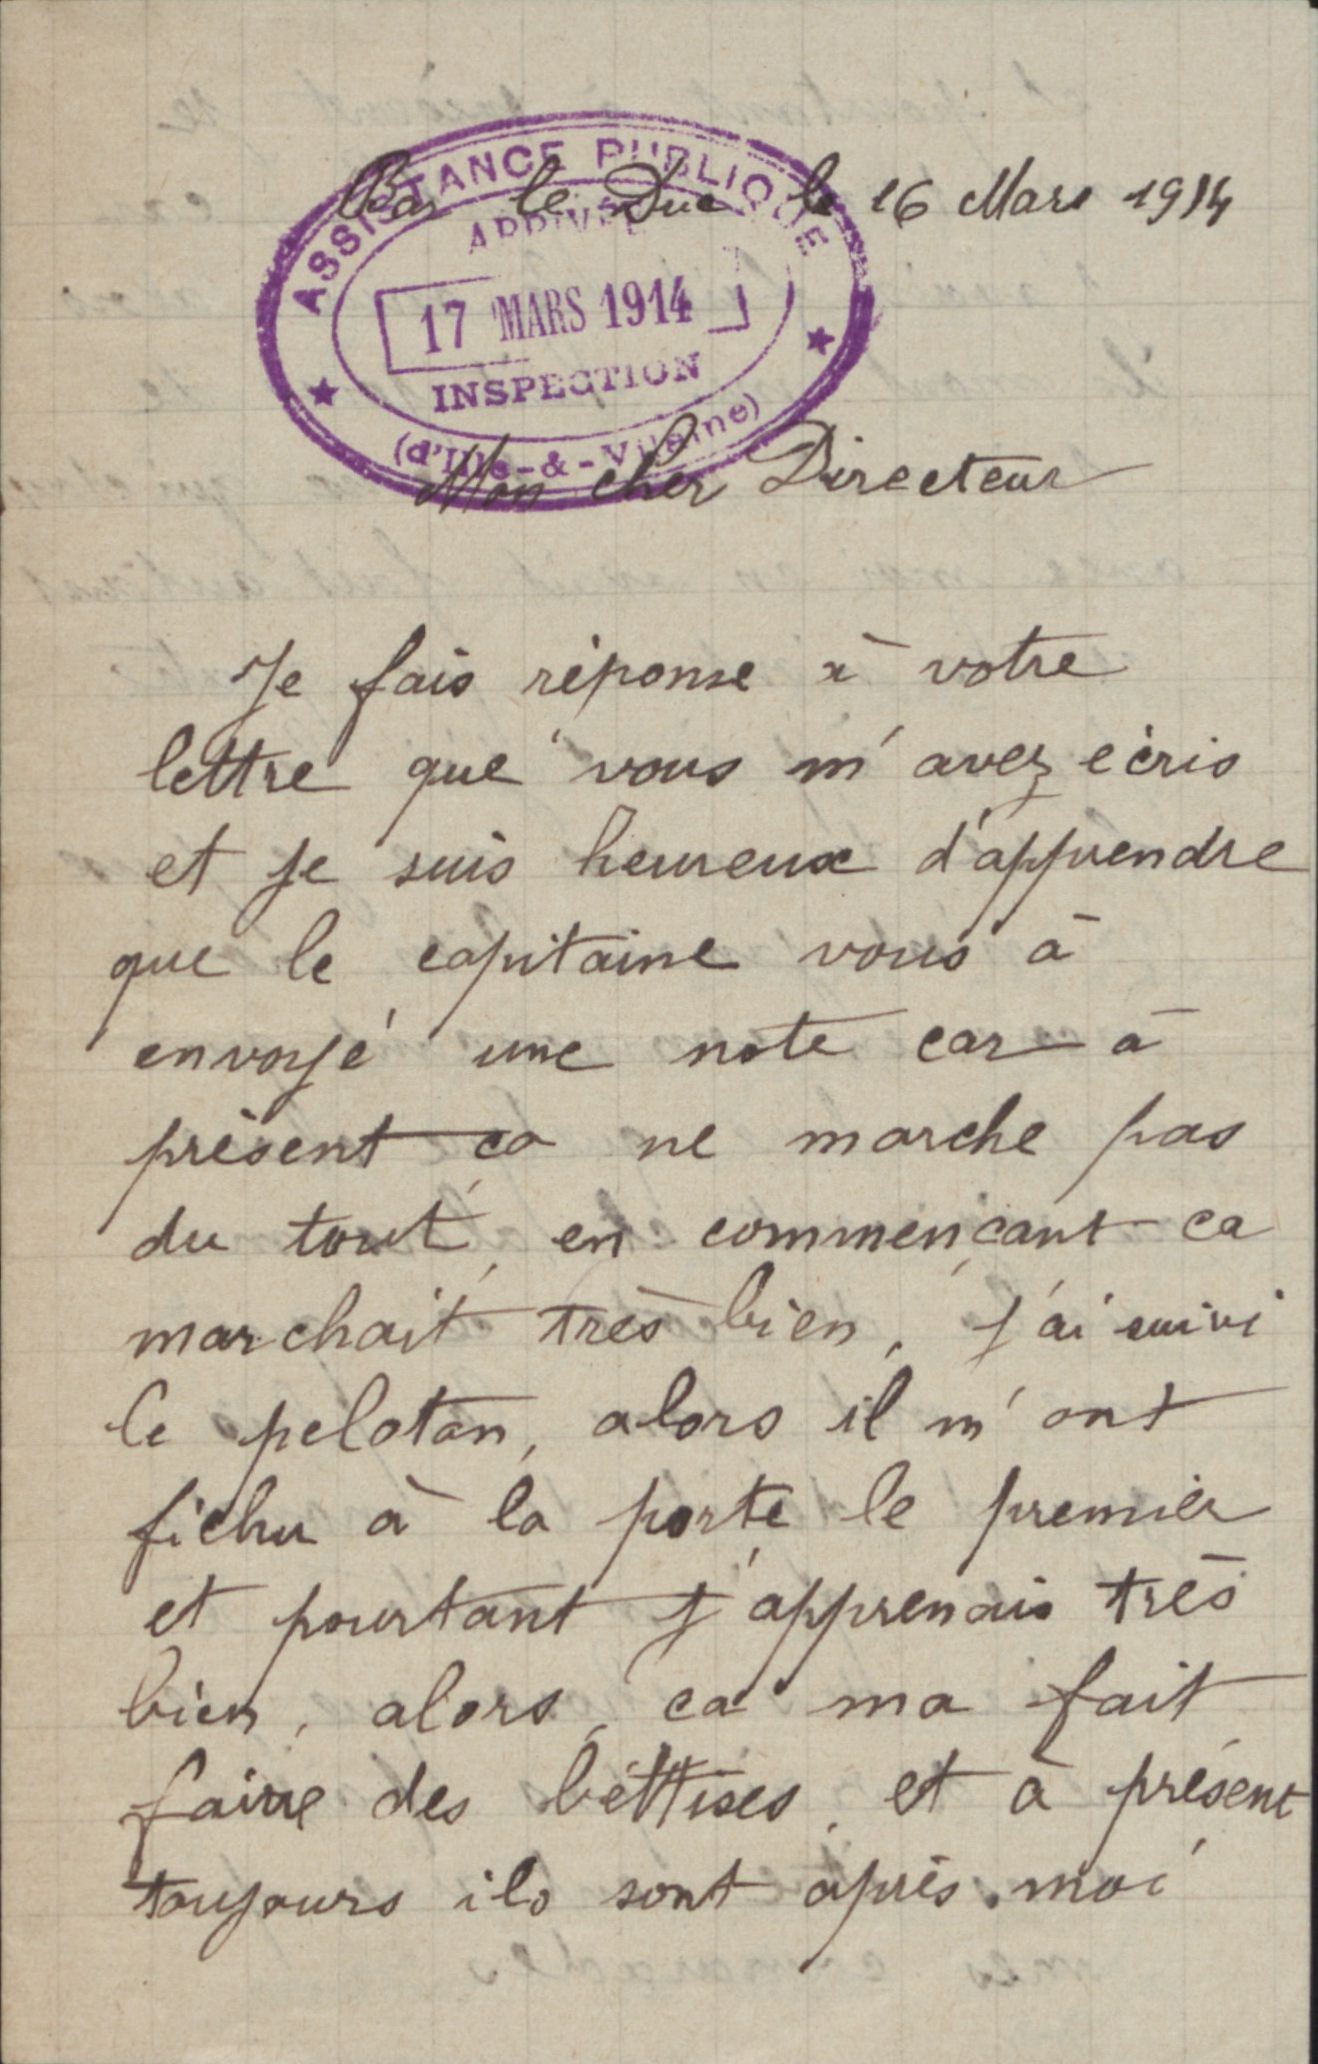 ASSISTANCE PUBLIQUE
Bar le Duc le 16 Mars 1914
ARRIVÉE
17 MARS 1914
INSPECTION
(d'Ille-&-Vilaine)
Mon cher Directeur
Je fais réponse à votre
lettre que vous m'avez ecris
et je suis heureux d'apprendre
que le capitaine vous à
envoyé une note car à
présent ca ne marche pas
du tout, en commencant ca
marchait très bien, j'ai suivi
le peloton, alors il m'ont
fichu à la porte le premier
et pourtant j'apprenais très
bien, alors, ca ma fait
faire des bêttises, et à présent
toujours ils sont après moi